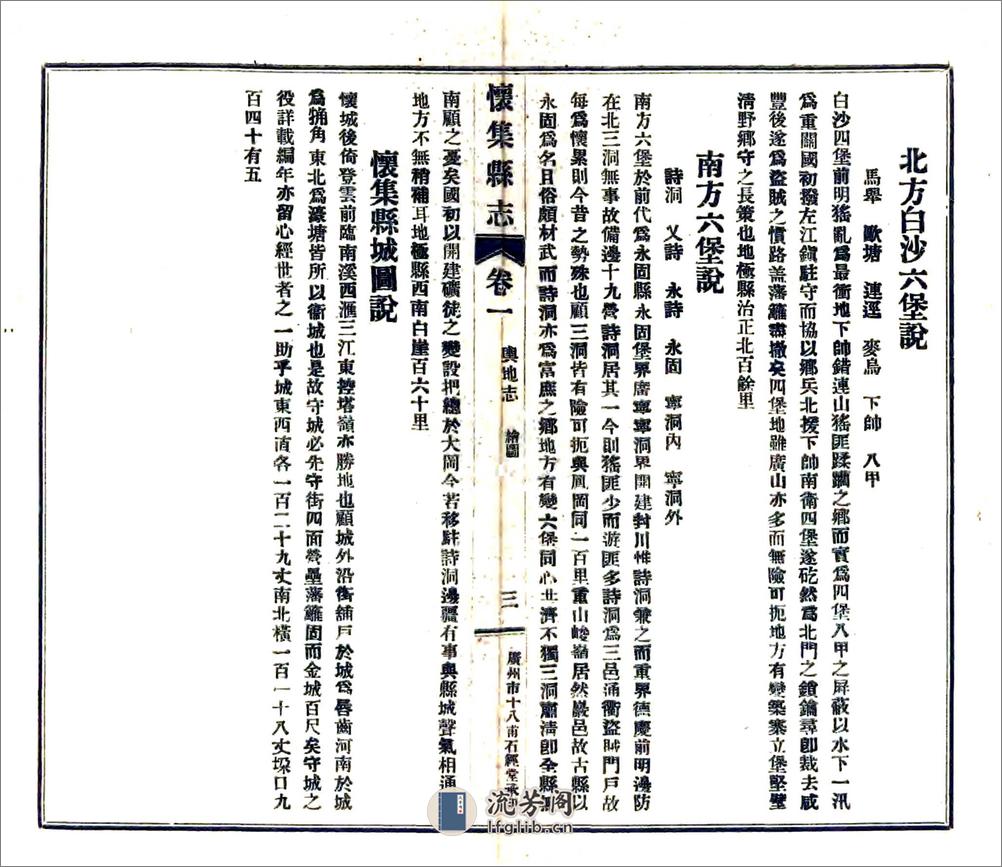 北方白沙六堡說
馬舉 歐塘 連逕 麥鳥 下帥 八甲
白沙四堡前明猺亂爲最衝地下帥錯連山猺匪蹂躪之鄉而實爲四堡八甲之屏蔽以水下一汛
爲重關國初撥左江鎭駐守而協以鄉兵北援下帥南衛四堡遂矻然爲北門之鎖鑰尋卽裁去咸
豐後遂爲盜賊之慣路盖藩籬盡撤矣四堡地雖廣山亦多而無險可扼地方有變築寨立堡堅壁
清野鄉守之長策也地極縣治正北百餘里
南方六堡說
詩洞 乂詩 永詩 永固 寧洞內 寧洞外
南方六堡於前代爲永固縣永固堡界廣寧寧洞界開建封川惟詩洞兼之而重界德慶前明邊防
在北三洞無事故備邊十九營詩洞居其一今則猺匪少而游匪多詩洞爲三邑通衢盜賊門戶故
每爲懷累則今昔之勢殊也顧三洞皆有險可扼與鳳岡同一百里重山峻嶺居然巖邑故古縣以
永固爲名且俗頗材武而詩洞亦爲富庶之鄉地方有變六堡同心共濟不獨三洞肅淸卽全縣
懷集縣志
卷一
輿地志
繪圖
三
廣州市十八甫石經堂承
南顧之憂矣國初以開建礦徒之變設把總於大岡今若移駐詩洞邊疆有事與縣城聲氣相通
地方不無稍補耳地極縣西南白崖百六十里
懷集縣城圖說
懷城後倚登雲前臨南溪西滙三江東控塔嶺亦勝地也顧城外沿街舖戶於城爲唇齒河南於城
爲犄角東北爲濠塘皆所以衞城也是故守城必先守街四面營壘藩籬固而金城百尺矣守城之
役詳載編年亦留心經世者之一助乎城東西直各一百二十九丈南北橫一百一十八丈垜口九
百四十有五
流芳閣
lfglib.cn